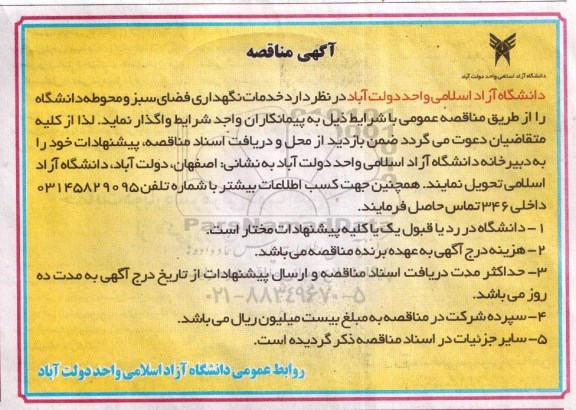 دانشگاه آزاد اسلامی واحد دولت آباد
آگهی مناقصه
دانشگاه آزاد اسلامی واحد دولت آباد در نظر دارد خدمات نگهداری فضای سبز و محوطه دانشگاه
را از طریق مناقصه عمومی با شرایط ذیل به پیمانکاران واجد شرایط واگذار نماید. لذا از کلیه
متقاضیان دعوت می گردد ضمن بازدید از محل و دریافت اسناد مناقصه، پیشنهادات خود را
به دبیرخانه دانشگاه آزاد اسلامی واحد دولت آباد به نشانی: اصفهان، دولت آباد، دانشگاه آزاد
اسلامی تحویل نمایند. همچنین جهت کسب اطلاعات بیشتر با شماره تلفن ۰۳۱۴۵۸۲۹۰۹۵
داخلی ۳۴۶ تماس حاصل فرمایند.
۱- دانشگاه در رد یا قبول یک یا کلیه پیشنهادات مختار است.
۲- هزینه درج آگهی به عهده برنده مناقصه می باشد.
۳- حداکثر مدت دریافت اسناد مناقصه و ارسال پیشنهادات از تاریخ درج آگهی به مدت ده
روز می باشد.
۴- سپرده شرکت در مناقصه به مبلغ بیست میلیون ریال می باشد.
۵- سایر جزئیات در اسناد مناقصه ذکر گردیده است.
روابط عمومی دانشگاه آزاد اسلامی واحد دولت آباد
ParsNamadData
۰۲۱-۸۸۳۴۹۶۷۰-۵